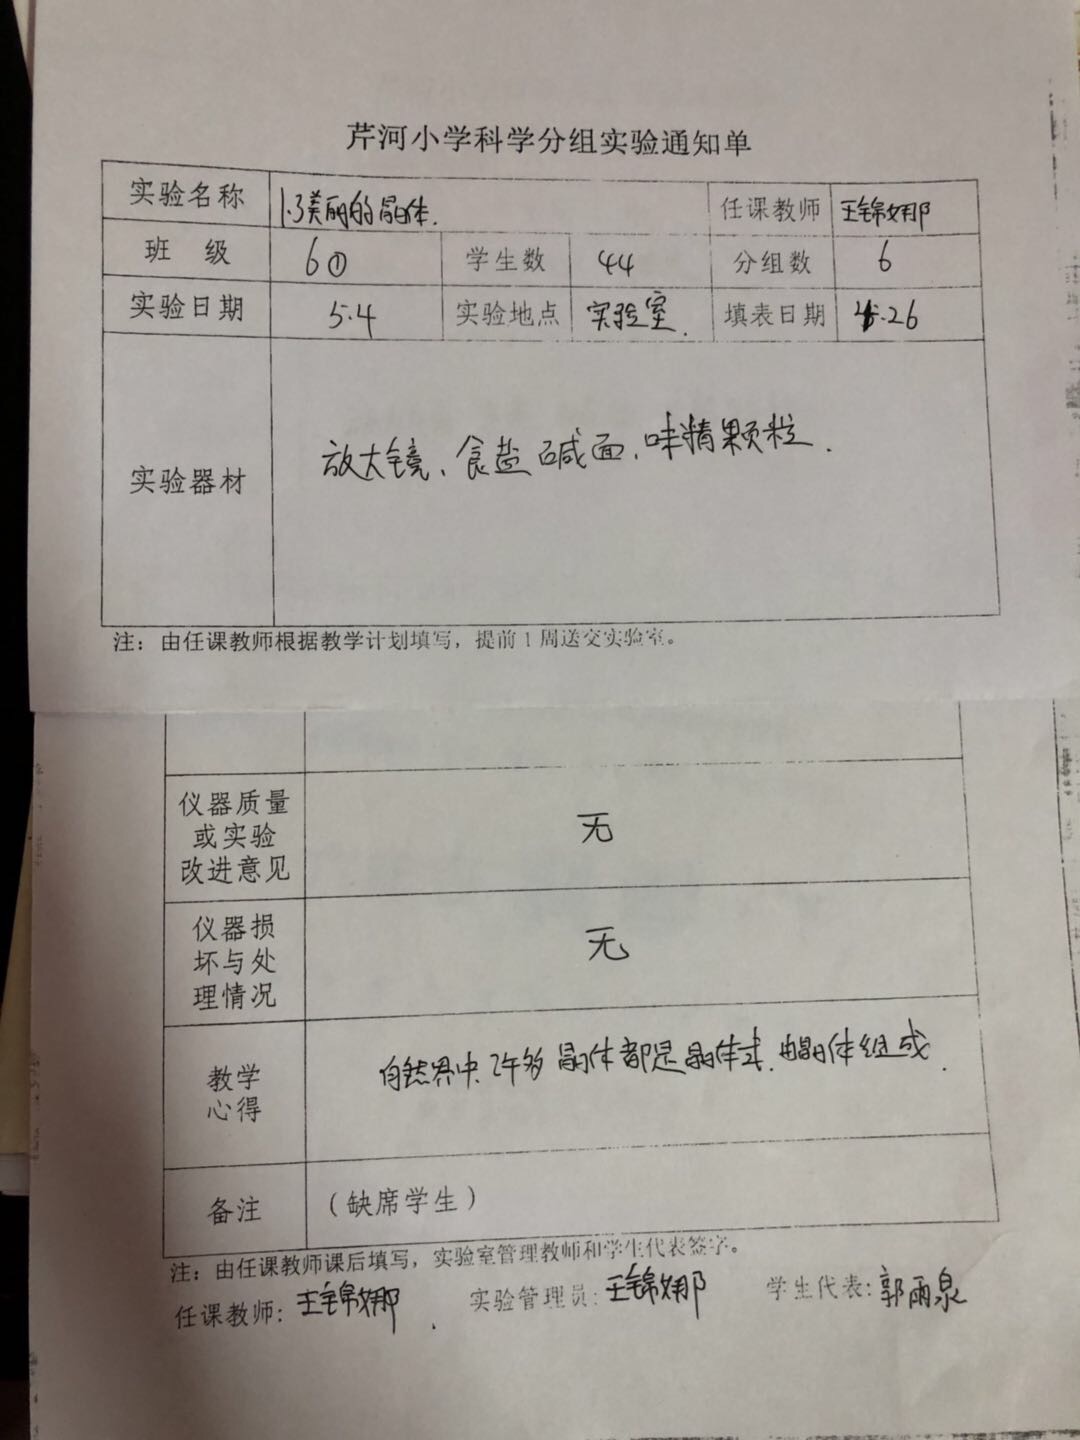 芹河小学科学分组实验通知单
实验名称 1.3美丽的晶体. 任课教师 王锦娜
班 级 6① 学生数 44 分组数 6
实验日期 5.4 实验地点 实验室. 填表日期 4.26
实验器材 放大镜、食盐 碱面、味精颗粒.
注：由任课教师根据教学计划填写，提前1周送交实验室。
仪器质量
或实验
改进意见 无
仪器损
坏与处
理情况 无
教学
心得 自然界中、许多 晶体都是晶体 由晶体组成.
备注 （缺席学生）
注：由任课教师课后填写，实验室管理教师和学生代表签字。
任课教师：王锦娜. 实验管理员：王锦娜 学生代表：郭雨泉